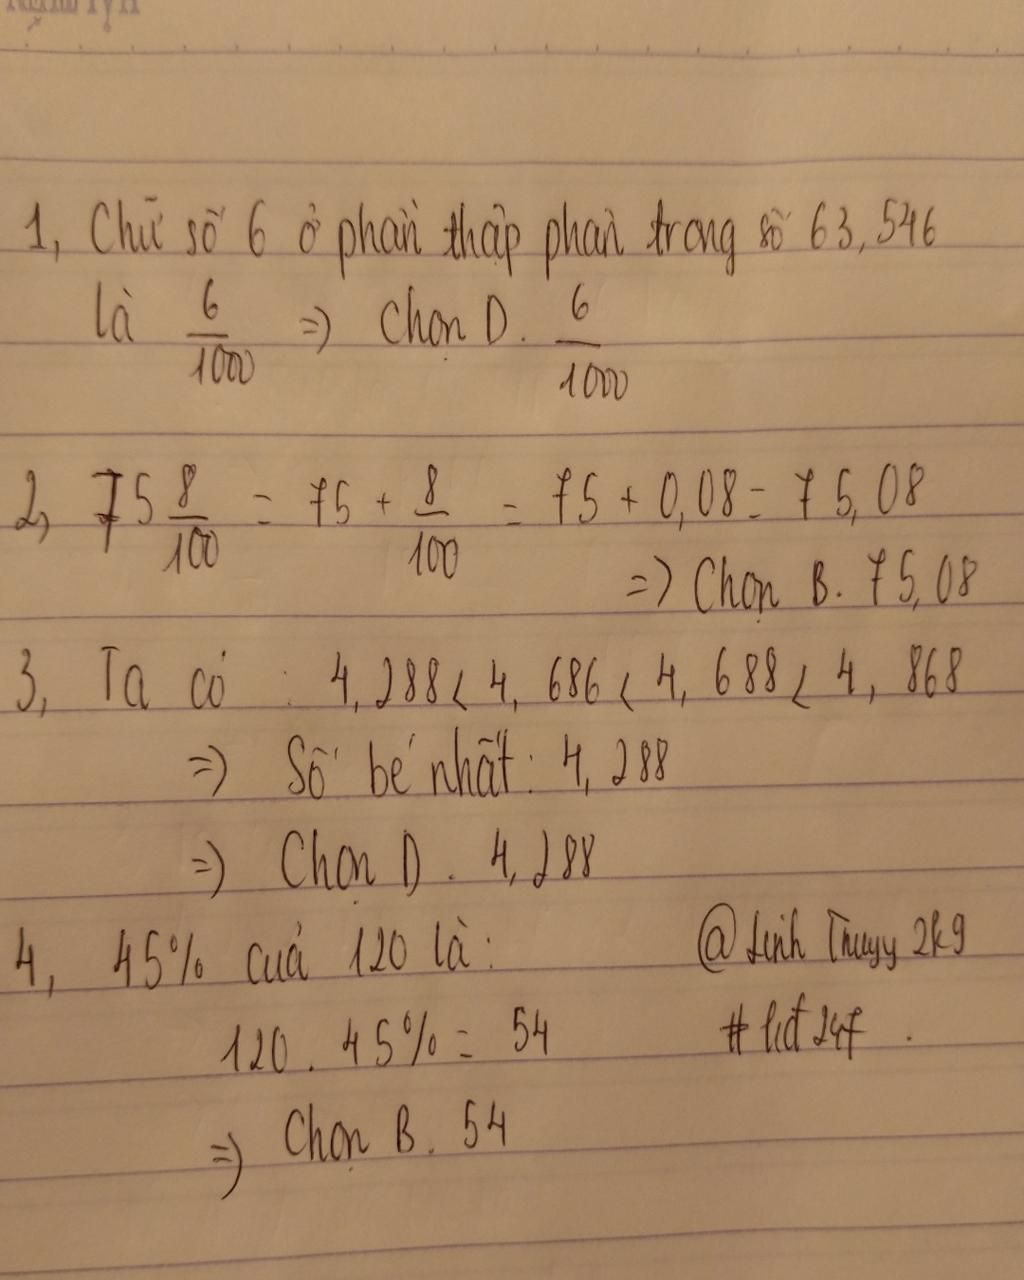 1, Chữ số 6 ở phần thập phần trong số 63,546
là 6/1000 => Chọn D. 6/1000
2, 75 8/100 = 75 + 8/100 = 75 + 0,08 = 75,08
=> Chọn B. 75,08
3, Ta có : 4,288 < 4,686 < 4,688 < 4,868
=> Số bé nhất : 4,288
=> Chọn D. 4,288
4, 45% của 120 là :
@Linh Thuyy 2k9
120 . 45% = 54
# lid 247 .
=> Chọn B. 54